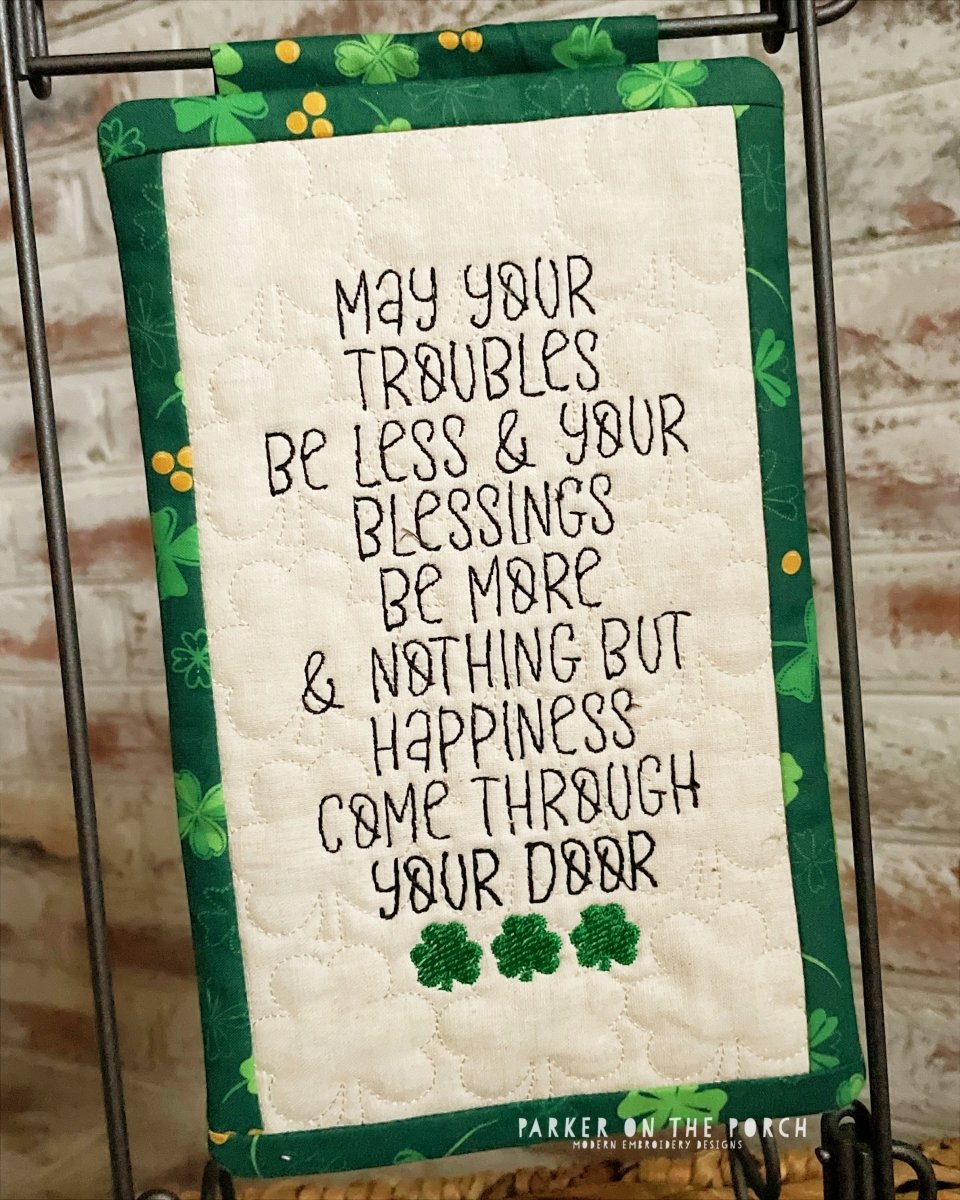 May your
TROUBLES
Be Less & your
BLESSINGS
Be MORE
& NOTHING BUT
HaPPINESS
COME THROUGH
yOUR DOOR
PARKER ON THE PORCH
MODERN EMBROIDERY DESIGNS